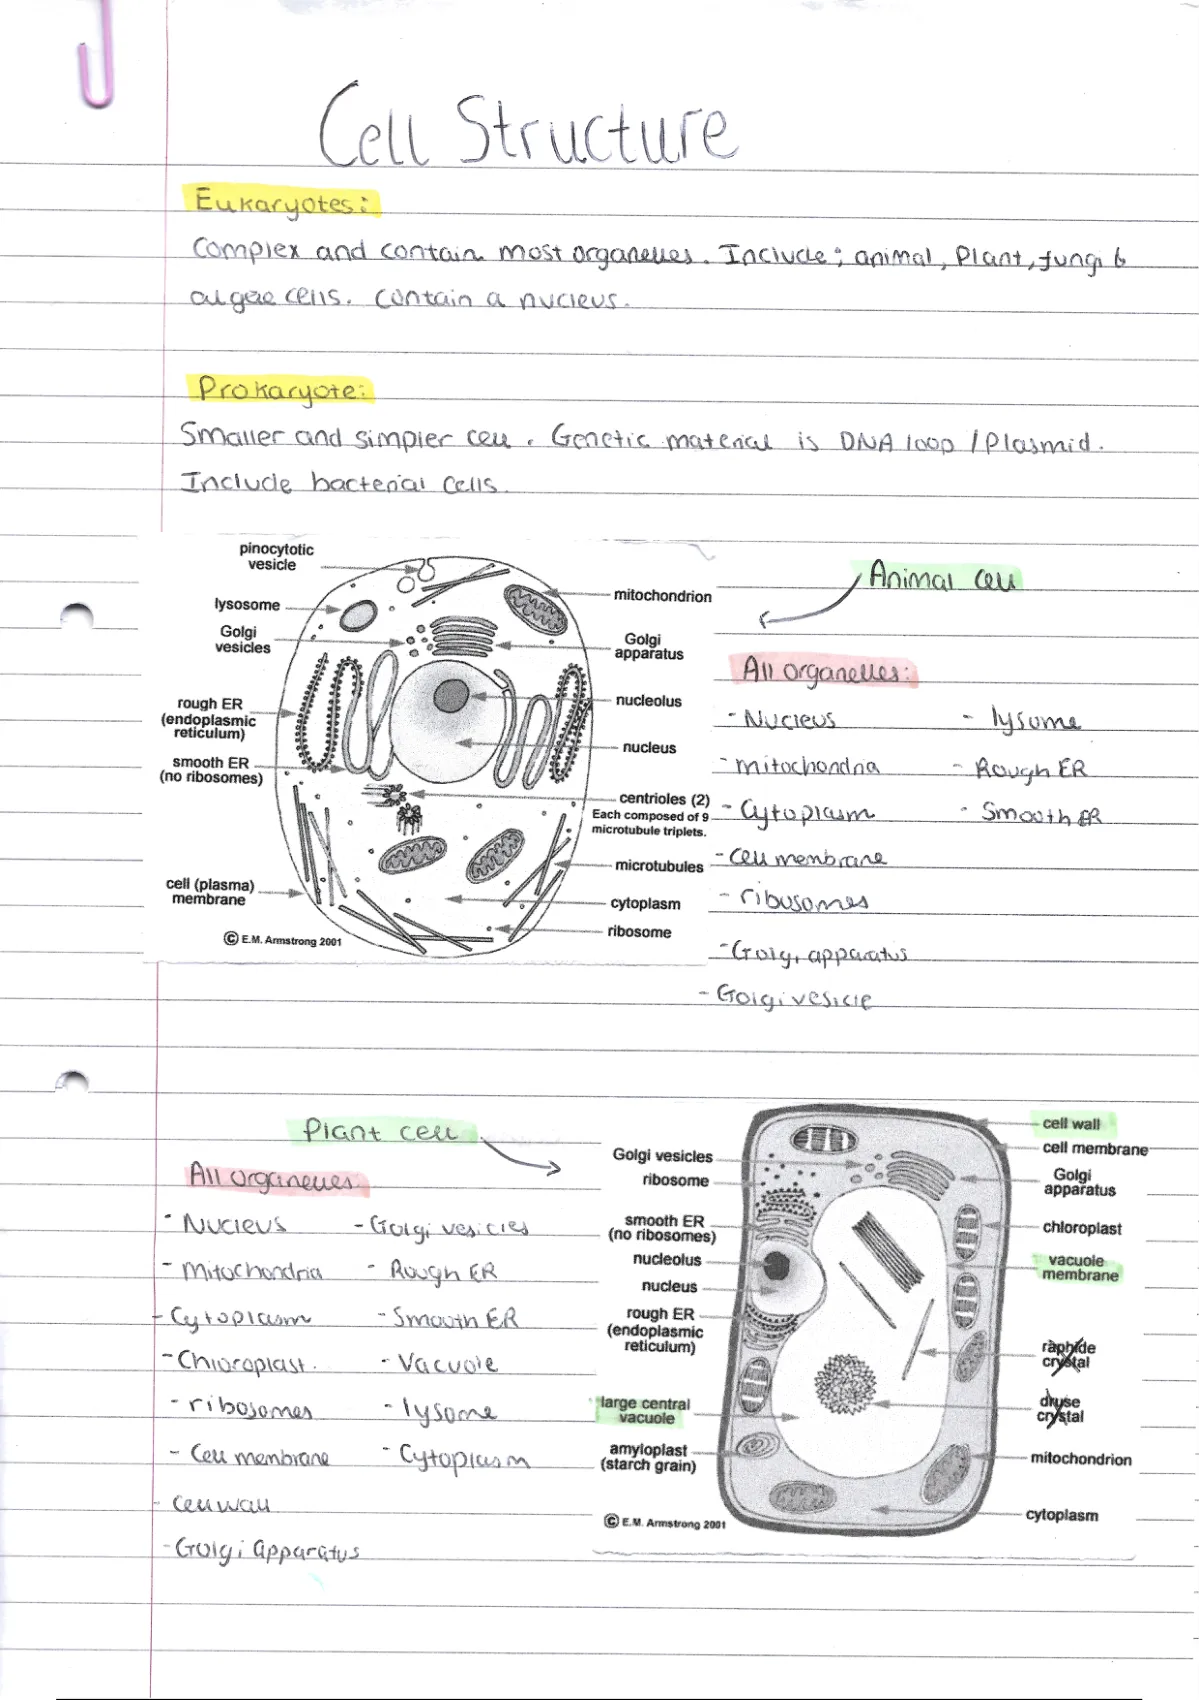 Cell Structure
Eukaryotes:
Complex and contain most organelles. Include; animal, Plant, fungi &
algae cells. Contain a nucleus.
Prokaryote:
Smaller and simpler cell. Genetic material is DNA loop / Plasmid.
Include bacterial cells.
pinocytotic
vesicle
lysosome
Golgi
vesicles
rough ER
(endoplasmic
reticulum)
smooth ER
(no ribosomes)
cell (plasma)
membrane
© E.M. Armstrong 2001
mitochondrion
Golgi
apparatus
nucleolus
nucleus
centrioles (2)
Each composed of 9
microtubule triplets.
microtubules
cytoplasm
ribosome
Animal cell
All organelles:
- Nucleus
- lysome
- mitochondria
- Rough ER
- Cytoplasm
- Smooth ER
- Cell membrane
- ribosomes
- Golgi apparatus
- Golgi vesicle
Plant cell
All organelles:
- Nucleus
- Golgi vesicles
- Mitochondria
- Rough ER
- Cytoplasm
- Smooth ER
- Chloroplast.
- Vacuole
- ribosomes
- lysome
- Cell membrane
- Cytoplasm
- Cell wall
- Golgi apparatus
Golgi vesicles
ribosome
smooth ER
(no ribosomes)
nucleolus
nucleus
rough ER
(endoplasmic
reticulum)
large central
vacuole
amyloplast
(starch grain)
© E.M. Armstrong 2001
cell wall
cell membrane
Golgi
apparatus
chloroplast
vacuole
membrane
raphide
crystal
druse
crystal
mitochondrion
cytoplasm